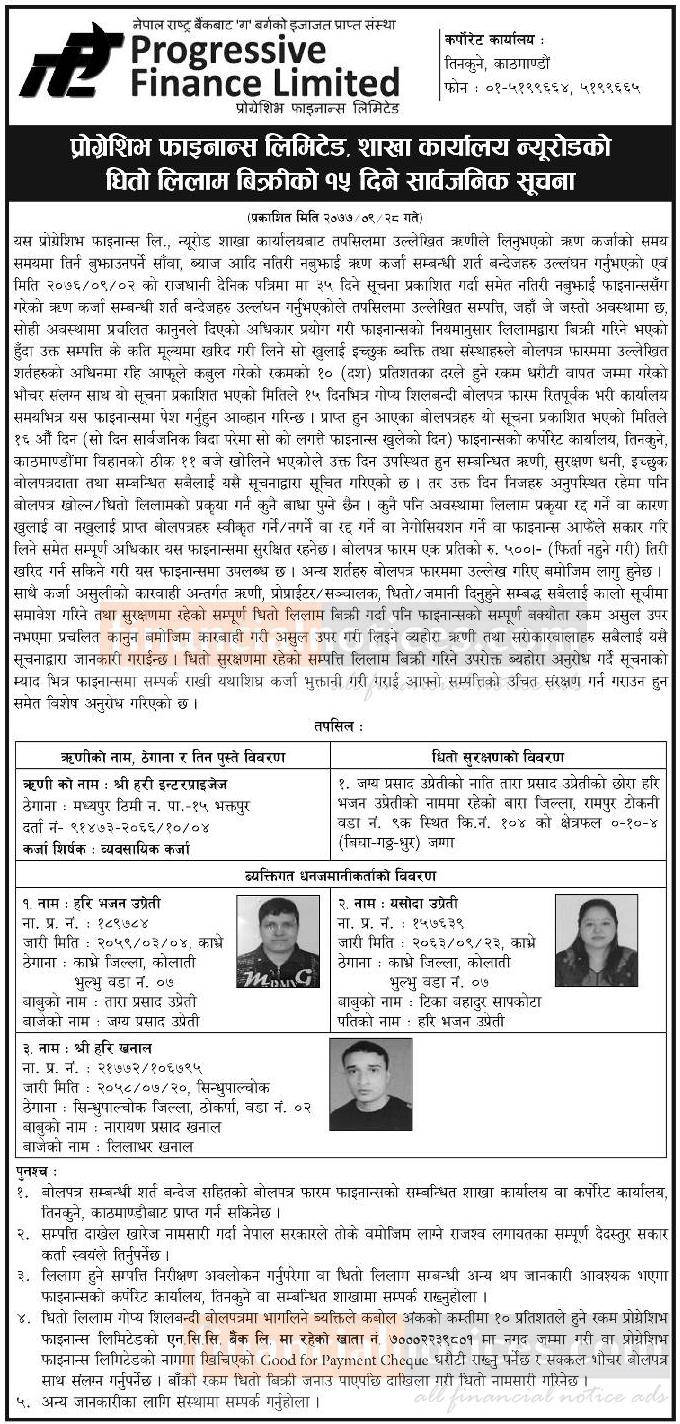 नेपाल राष्ट्र बैंकबाट 'ग' बर्गको इजाजत प्राप्त संस्था
Progressive
Finance Limited
प्रोग्रेशिभ फाइनान्स लिमिटेड
कर्पोरेट कार्यालय :
तिनकुने, काठमाण्डौं
फोन : ०१-५१९९६६४, ५१९९६६५
प्रोग्रेशिभ फाइनान्स लिमिटेड, शाखा कार्यालय न्यूरोडको
धितो लिलाम बिक्रीको १५ दिने सार्वजनिक सूचना
(प्रकाशित मिति २०७७/०९/२८ गते)
यस प्रोग्रेशिभ फाइनान्स लि., न्यूरोड शाखा कार्यालयबाट तपसिलमा उल्लेखित ऋणीले लिनुभएको ऋण कर्जाको समय
समयमा तिर्न बुझाउनपर्ने साँवा, ब्याज आदि नतिरी नबुझाई ऋण कर्जा सम्बन्धी शर्त बन्देजहरु उल्लंघन गर्नुभएको एवं
मिति २०७६/०९/०२ को राजधानी दैनिक पत्रिमा मा ३५ दिने सूचना प्रकाशित गर्दा समेत नतिरी नबुझाई फाइनान्ससँग
गरेको ऋण कर्जा सम्बन्धी शर्त बन्देजहरु उल्लंघन गर्नुभएकोले तपसिलमा उल्लेखित सम्पत्ति, जहाँ जे जस्तो अवस्थामा छ,
सोही अवस्थामा प्रचलित कानुनले दिएको अधिकार प्रयोग गरी फाइनान्सको नियमानुसार लिलामद्वारा बिक्री गरिने भएको
हुँदा उक्त सम्पत्ति के कति मूल्यमा खरिद गरी लिने सो खुलाई इच्छुक ब्यक्ति तथा संस्थाहरुले बोलपत्र फारममा उल्लेखित
शर्तहरुको अधिनमा रहि आफूले कबुल गरेको रकमको १० (दश) प्रतिशतका दरले हुने रकम धरौटी वापत जम्मा गरेको
भौचर संलग्न साथ यो सूचना प्रकाशित भएको मितिले १५ दिनभित्र गोप्य शिलबन्दी बोलपत्र फारम रितपूर्वक भरी कार्यालय
समयभित्र यस फाइनान्समा पेश गर्नुहुन आव्हान गरिन्छ । प्राप्त हुन आएका बोलपत्रहरु यो सूचना प्रकाशित भएको मितिले
१६ औं दिन (सो दिन सार्वजनिक विदा परेमा सो को लगत्तै फाइनान्स खुलेको दिन) फाइनान्सको कर्पोरेट कार्यालय, तिनकुने,
काठमाण्डौंमा विहानको ठीक ११ बजे खोलिने भएकोले उक्त दिन उपस्थित हुन सम्बन्धित ऋणी, सुरक्षण धनी, इच्छुक
बोलपत्रदाता तथा सम्बन्धित सबैलाई यसै सूचनाद्वारा सूचित गरिएको छ । तर उक्त दिन निजहरु अनुपस्थित रहेमा पनि
बोलपत्र खोल्न/धितो लिलामको प्रकृया गर्न कुनै बाधा पुग्ने छैन । कुनै पनि अवस्थामा लिलाम प्रकृया रद्द गर्ने वा कारण
खुलाई वा नखुलाई प्राप्त बोलपत्रहरु स्वीकृत गर्ने/नगर्ने वा रद्द गर्ने वा नेगोसियशन गर्ने वा फाइनान्स आफैंले सकार गरि
लिने समेत सम्पूर्ण अधिकार यस फाइनान्समा सुरक्षित रहनेछ । बोलपत्र फारम एक प्रतिको रु. ५००।- (फिर्ता नहुने गरी) तिरी
खरिद गर्न सकिने गरी यस फाइनान्समा उपलब्ध छ । अन्य शर्तहरु बोलपत्र फारममा उल्लेख गरिए बमोजिम लागु हुनेछ ।
साथै कर्जा असुलीको कारवाही अन्तर्गत ऋणी, प्रोप्राईटर/सञ्चालक, धितो/जमानी दिनुहुने सम्बद्ध सबैलाई कालो सूचीमा
समावेश गरिने तथा सुरक्षणमा रहेको सम्पूर्ण धितो लिलाम बिक्री गर्दा पनि फाइनान्सको सम्पूर्ण बक्यौता रकम असुल उपर
नभएमा प्रचलित कानुन बमोजिम कारबाही गरी असुल उपर गरी लिइने व्यहोरा ऋणी तथा सरोकारवालाहरु सबैलाई यसै
सूचनाद्वारा जानकारी गराईन्छ । धितो सुरक्षणमा रहेको सम्पत्ति लिलाम बिक्री गरिने उपरोक्त ब्यहोरा अनुरोध गर्दै सूचनाको
म्याद भित्र फाइनान्समा सम्पर्क राखी यथाशिघ्र कर्जा भुक्तानी गरी गराई आफ्नो सम्पत्तिको उचित संरक्षण गर्न गराउन हुन
समेत विशेष अनुरोध गरिएको छ ।
तपसिल :
ऋणीको नाम, ठेगाना र तिन पुस्ते विवरण
धितो सुरक्षणको विवरण
ऋणी को नाम : श्री हरी इन्टरप्राइजेज
ठेगाना : मध्यपुर ठिमी न. पा.-१५ भक्तपुर
दर्ता नं- ९१४७३-२०६६/१०/०४
कर्जा शिर्षक : व्यवसायिक कर्जा
१. जग्य प्रसाद उप्रेतीको नाति तारा प्रसाद उप्रेतीको छोरा हरि
भजन उप्रेतीको नाममा रहेको बारा जिल्ला, रामपुर टोकनी
वडा नं. ९क स्थित कि.नं. १०४ को क्षेत्रफल ०-१०-४
(बिघा-गठ्ठ-धुर) जग्गा
ब्यक्तिगत धनजमानीकर्ताको विवरण
१. नाम : हरि भजन उप्रेती
ना. प्र. नं. : १८९७८४
जारी मिति : २०५९/०३/०४, काभ्रे
ठेगाना : काभ्रे जिल्ला, कोलाती
भुल्भु वडा नं. ०७
बाबुको नाम : तारा प्रसाद उप्रेती
बाजेको नाम : जग्य प्रसाद उप्रेती
२. नाम : यसोदा उप्रेती
ना. प्र. नं. : १५७६३९
जारी मिति : २०६३/०९/२३, काभ्रे
ठेगाना : काभ्रे जिल्ला, कोलाती
भुल्भु वडा नं. ०७
बाबुको नाम : टिका बहादुर सापकोटा
पतिको नाम : हरि भजन उप्रेती
३. नाम : श्री हरि खनाल
ना. प्र. नं. : २१७७२/१०६७९५
जारी मिति : २०५८/०७/२०, सिन्धुपाल्चोक
ठेगाना : सिन्धुपाल्चोक जिल्ला, ठोकर्पा, वडा नं. ०२
बाबुको नाम : नारायण प्रसाद खनाल
बाजेको नाम : लिलाधर खनाल
पुनश्च :
१. बोलपत्र सम्बन्धी शर्त बन्देज सहितको बोलपत्र फारम फाइनान्सको सम्बन्धित शाखा कार्यालय वा कर्पोरेट कार्यालय,
तिनकुने, काठमाण्डौबाट प्राप्त गर्न सकिनेछ ।
२. सम्पत्ति दाखेल खारेज नामसारी गर्दा नेपाल सरकारले तोके वमोजिम लाग्ने राजश्व लगायतका सम्पूर्ण देदस्तुर सकार
कर्ता स्वयंले तिर्नुपर्नेछ ।
३. लिलाम हुने सम्पत्ति निरीक्षण अवलोकन गर्नुपरेगा वा धितो लिलाम सम्बन्धी अन्य थप जानकारी आवश्यक भएगा
फाइनान्सको कर्पोरेट कार्यालय, तिनकुने वा सम्बन्धित शाखामा सम्पर्क राख्नुहोला ।
४. धितो लिलाम गोप्य शिलबन्दी बोलपत्रमा भागलिने ब्यक्तिले कबोल अंकको कम्तीमा १० प्रतिशतले हुने रकम प्रोग्रेशिभ
फाइनान्स लिमिटेडको एन.सि.सि. बैंक लि. मा रहेको खाता नं. ७०००२२३९८०१ मा नगद जम्मा गरी वा प्रोग्रेशिभ
फाइनान्स लिमिटेडको नामगा खिचिएको Good for Payment Cheque धरौटी राख्नु पर्नेछ र सक्कल भौचर बोलपत्र
साथ संलग्न गर्नुपर्नेछ । बाँकी रकम धितो बिक्री जनाउ पाएपछि दाखिला गरी धितो नामसारी गरिनेछ ।
५. अन्य जानकारीका लागि संस्थामा सम्पर्क गर्नुहोला ।
all financial notice ads